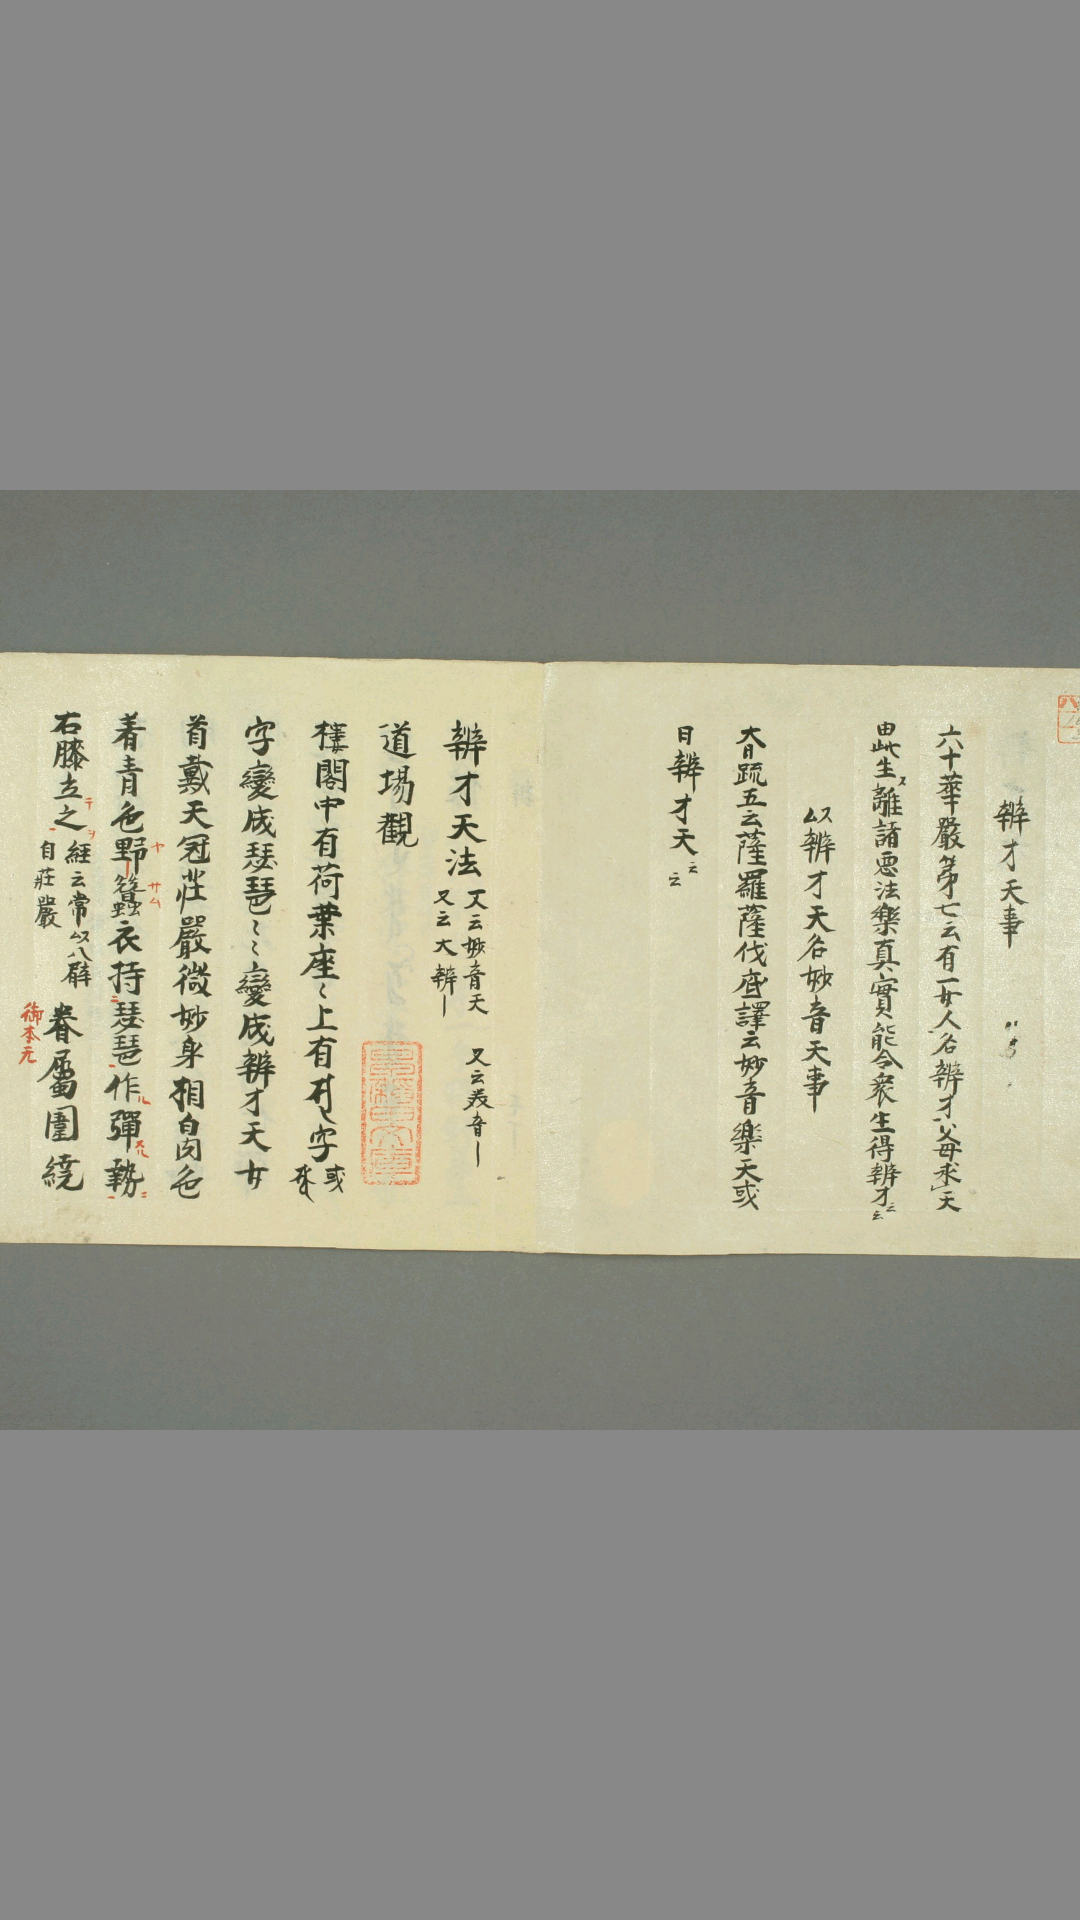 辨才天事
六十華嚴第七云有一女人名辨才父母求天
由此生離諸惡法樂真實能令衆生得辨才云云
以辨才天名妙音天事
大日疏五云薩羅薩伐底譯云妙音樂天或
曰辨才天云云
辨才天法 又云妙音天 又云大辨〡 又云美音〡
道場觀
樓閣中有荷葉座〻上有字或
字變成琵琶〻〻變成辨才天女
首戴天冠莊嚴微妙身相白肉色
着青色野蠶衣持琵琶作彈勢
右膝立之 經云常以八臂自莊嚴 眷屬圍繞
御本无